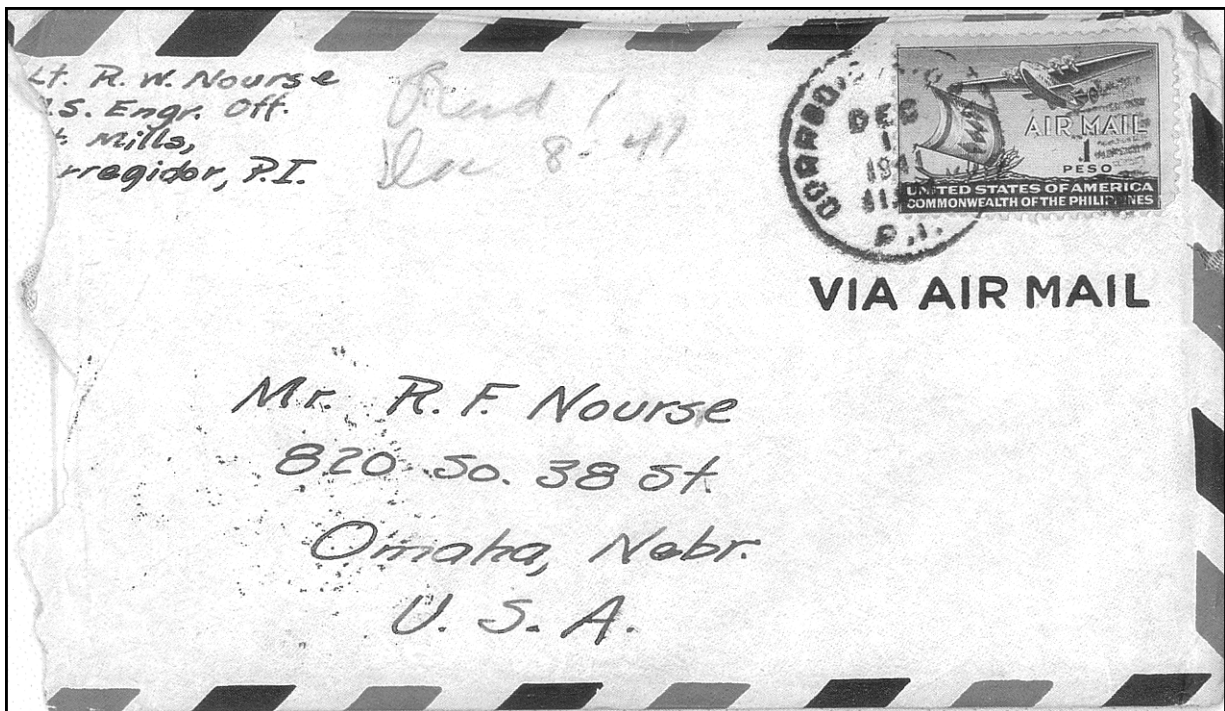 Lt. R. W. Nourse
.S. Engr. Off.
t. Mills,
rregidor, P.I.
Dec 8- 41
DEC
1
1941
P.I.
AIR MAIL
1
PESO
UNITED STATES OF AMERICA
COMMONWEALTH OF THE PHILIPPINES
VIA AIR MAIL
Mr. R. F. Nourse
820 So. 38 St.
Omaha, Nebr.
U. S. A.